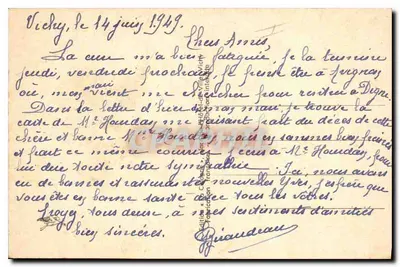 Vichy, le 14 juin 1949.
Chers Amis,
La cure m'a bien fatiguée, je la termine
jeudi, vendredi prochain, je pense être à Avignon
où, mon mari vient me chercher pour rentrer à Digne
Dans la lettre d'hier de mon mari, je trouve la
carte de Mr Houdas, me faisant part du décès de cette
chère et bonne Mme Houdas, nous en sommes bien peinés
et part ce même courrier à Mr Houdas, pour
lui dire toute notre sympathie. Ici, nous avons
eu de bonnes et rassurantes nouvelles d'Yves, j'espère que
vous êtes en bonne santé avec tous les vôtres.
Croyez, tous deux, à mes sentiments d'amitiés
bien sincères.